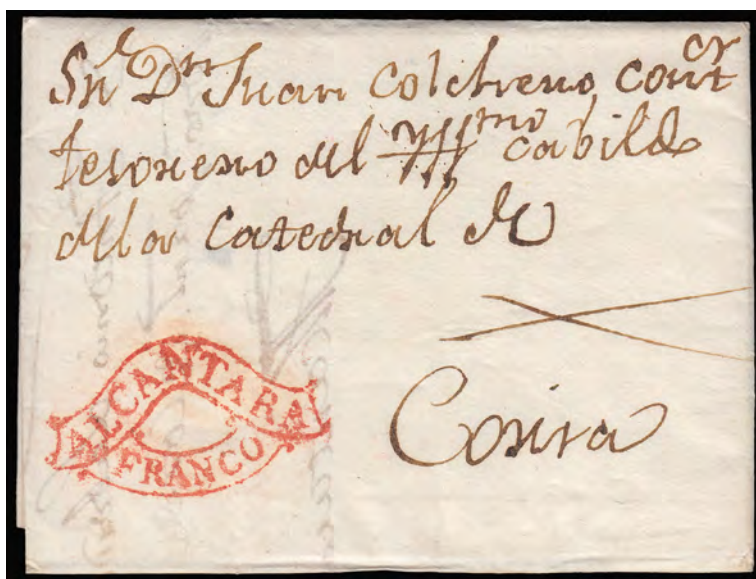 Sr. Dn. Juan Colchrero, contr
tesorero del Yllmo cabildo
dela Catedral de
Coria
ALCANTARA
FRANCO